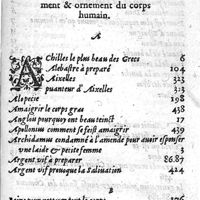 ment & ornement du corps
humain.
A
AChilles le plus beau des Grecs 6
Alebastre preparé 104
Aixelles 323
puanteur d'Aixelles 313
Alopecie 198
Amaigrir le corps gras 438
Anglon pourquoy ont beau teinct 17
Apollonius comment se feist amaigrir 439
Archidamus condamné à l'amende pour avoir espouser
vne laide & petite femme 3
Argent vif à preparer 86.87
Argent vif prouoque la saliuation 424
B